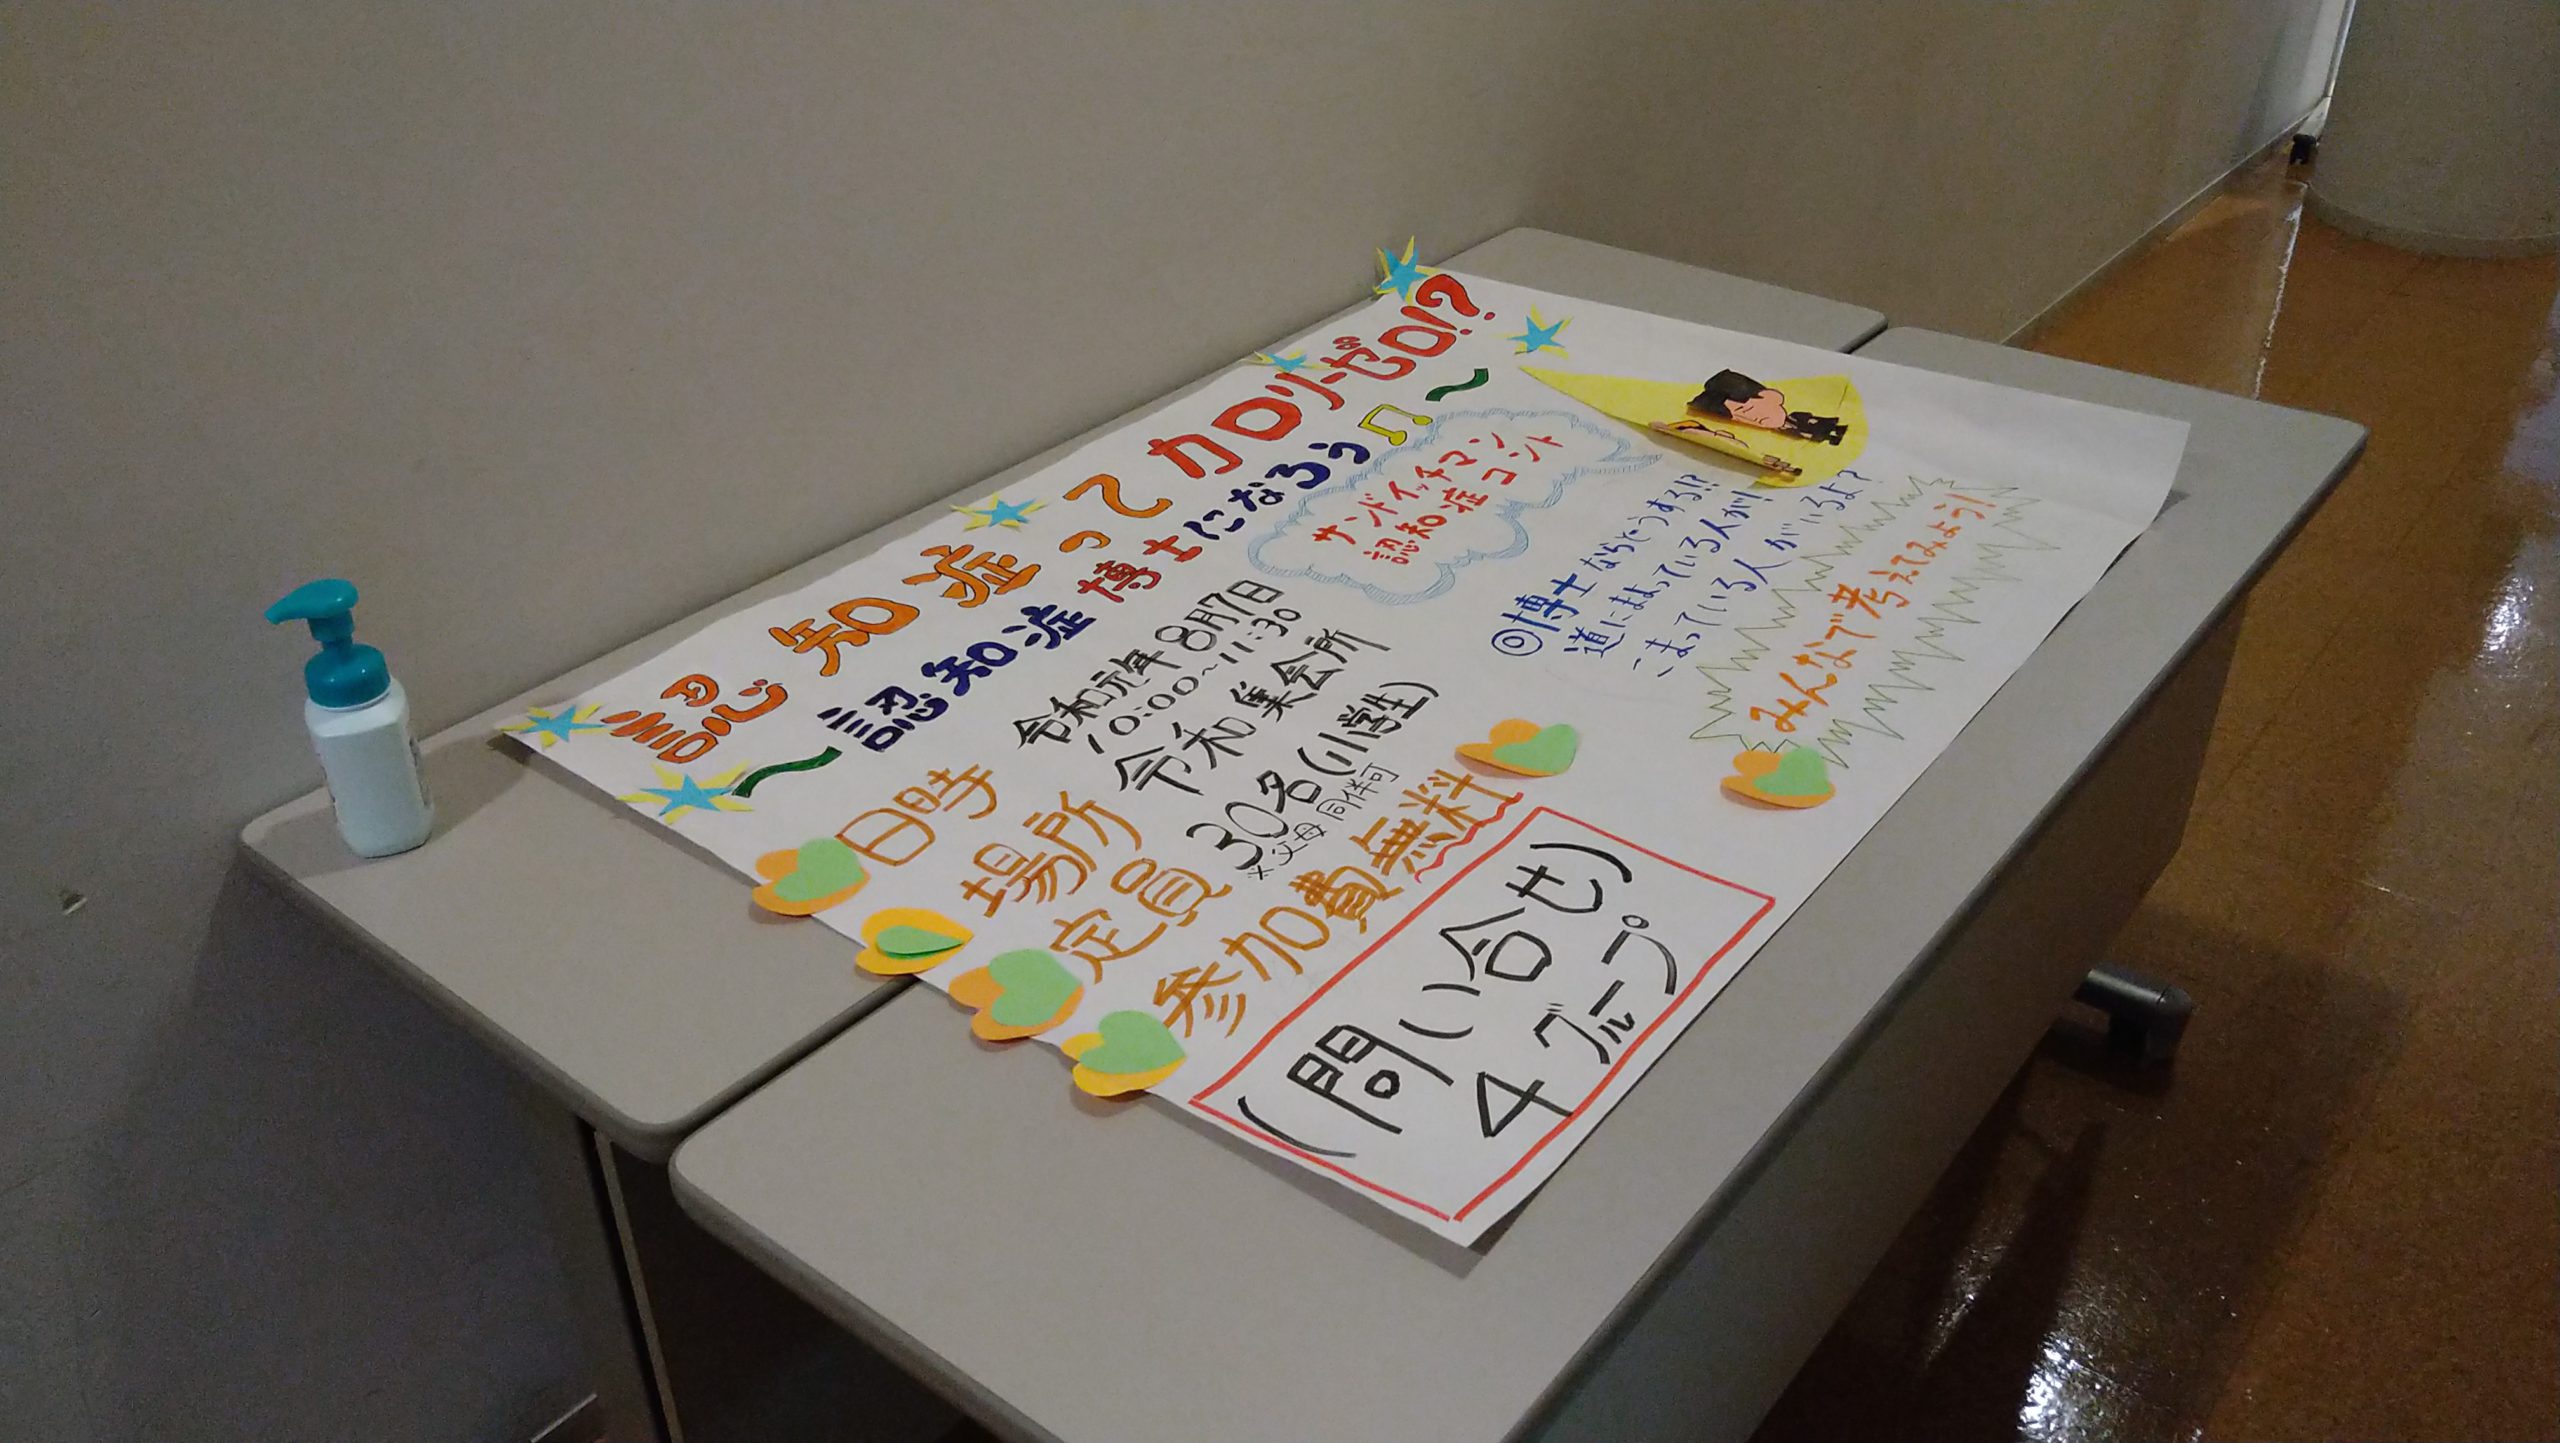 認知症ってカロリーゼロ!?
〜認知症博士になろう♫〜
日時 令和元年8月7日
10:00~11:30
場所 令和集会所
定員 30名(小学生)
※父母同伴可
参加費無料
(問い合せ)
4グループ
サンドイッチマン
認知症コント
◎博士ならどうする!?
道にまよっている人が!
こまっている人がいるよ?
みんなで考えてみよう!